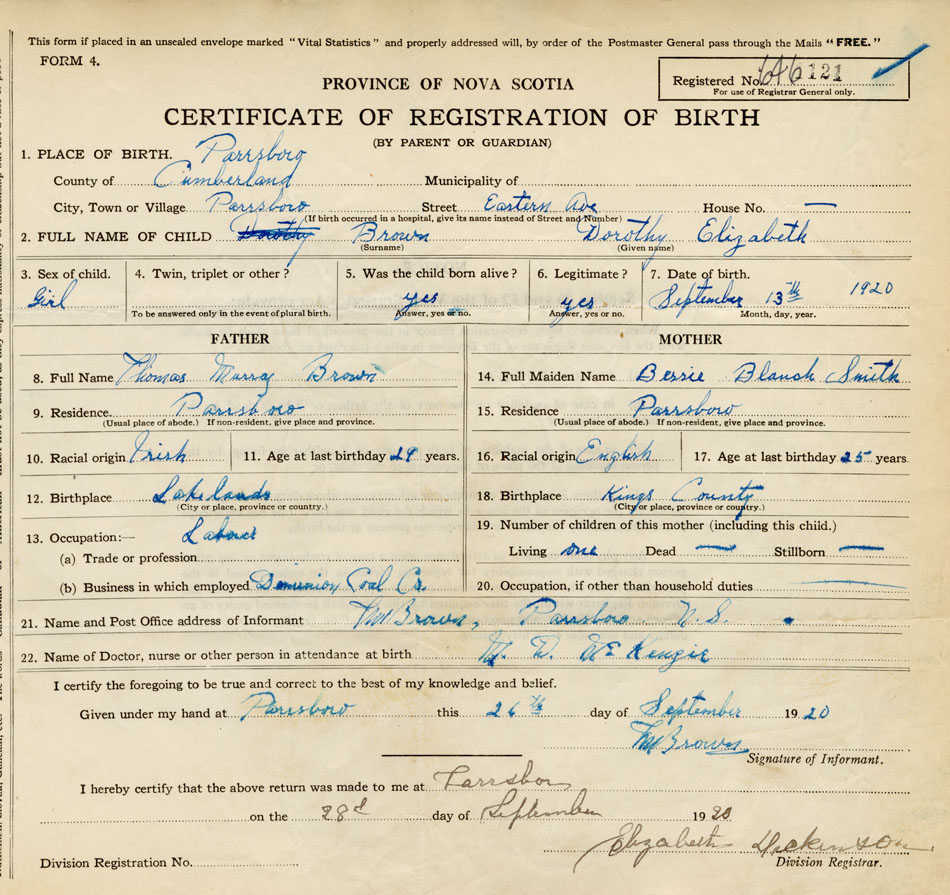 This form if placed in an unsealed envelope marked "Vital Statistics" and properly addressed will, by order of the Postmaster General pass through the Mails "FREE."
FORM 4.
PROVINCE OF NOVA SCOTIA
Registered No. 646121
For use of Registrar General only.
CERTIFICATE OF REGISTRATION OF BIRTH
(BY PARENT OR GUARDIAN)
1. PLACE OF BIRTH. Parrsboro
County of Cumberland Municipality of
City, Town or Village Parrsboro Street Eastern Ave House No. —
(If birth occurred in a hospital, give its name instead of Street and Number)
2. FULL NAME OF CHILD Dorothy Brown Dorothy Elizabeth
(Surname) (Given name)
3. Sex of child. 4. Twin, triplet or other? 5. Was the child born alive? 6. Legitimate? 7. Date of birth.
Girl yes yes September 13th 1920
To be answered only in the event of plural birth. Answer, yes or no. Answer, yes or no. Month, day, year.
FATHER MOTHER
8. Full Name Thomas Murray Brown
9. Residence. Parrsboro
(Usual place of abode.) If non-resident, give place and province.
10. Racial origin Irish 11. Age at last birthday 29 years.
12. Birthplace Lakelands
(City or place, province or country.)
13. Occupation:— Laborer
(a) Trade or profession
(b) Business in which employed Dominion Coal Co.
14. Full Maiden Name Bessie Blanch Smith
15. Residence Parrsboro
(Usual place of abode.) If non-resident, give place and province.
16. Racial origin English 17. Age at last birthday 25 years.
18. Birthplace Kings County
(City or place, province or country.)
19. Number of children of this mother (including this child.)
Living one Dead — Stillborn —
20. Occupation, if other than household duties —
21. Name and Post Office address of Informant TM Brown, Parrsboro N.S.
22. Name of Doctor, nurse or other person in attendance at birth M. D. McKenzie
I certify the foregoing to be true and correct to the best of my knowledge and belief.
Given under my hand at Parrsboro this 26th day of September 1920
TM Brown
Signature of Informant.
I hereby certify that the above return was made to me at Parrsboro
on the 28d day of September 1920
Elizabeth Dickinson
Division Registration No. Division Registrar.